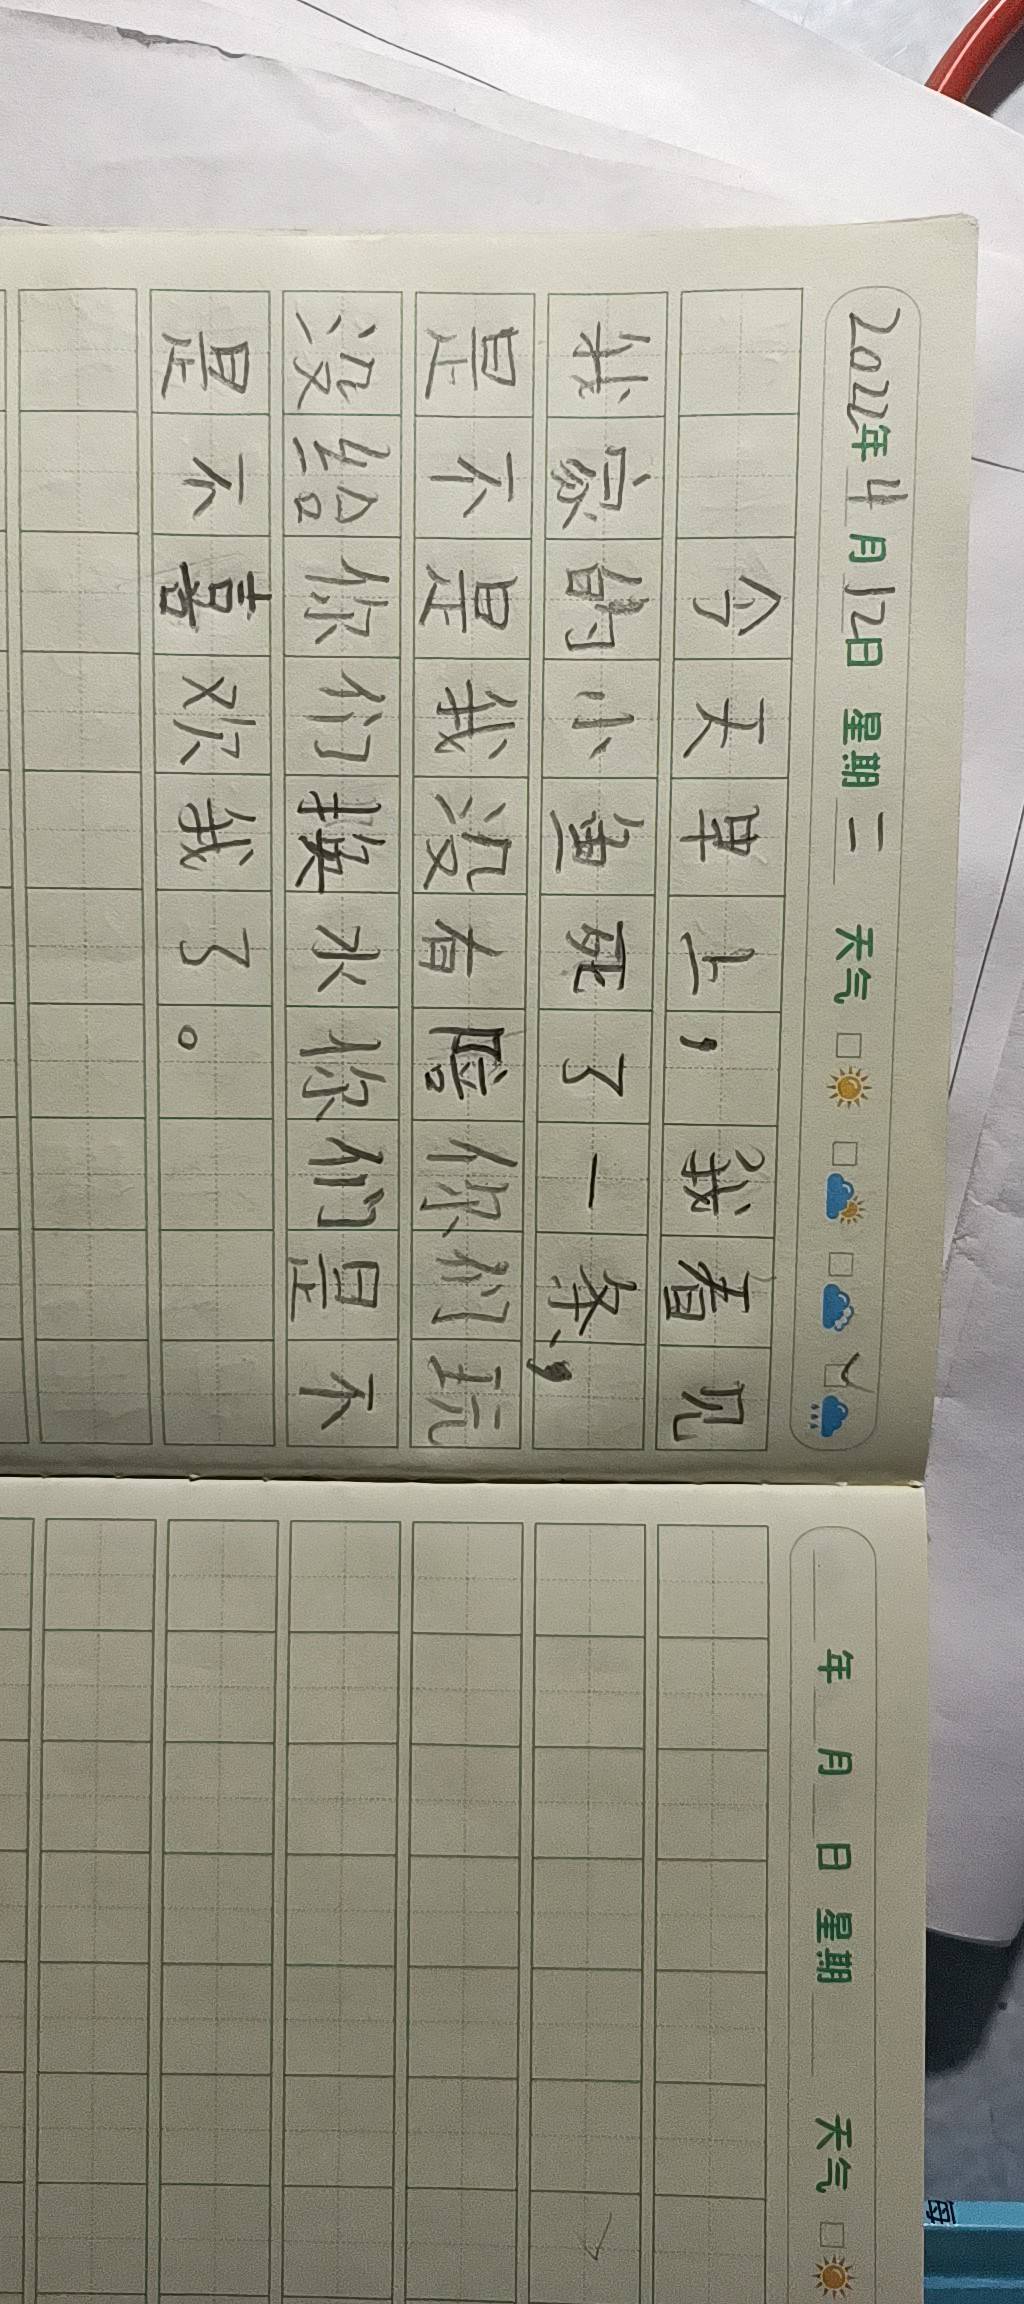 2022年4月12日 星期二 天气
今天早上，我看见
我家的小鱼死了一条，
是不是我没有陪你们玩
没给你们换水你们是不
是不喜欢我了。
年 月 日 星期 天气